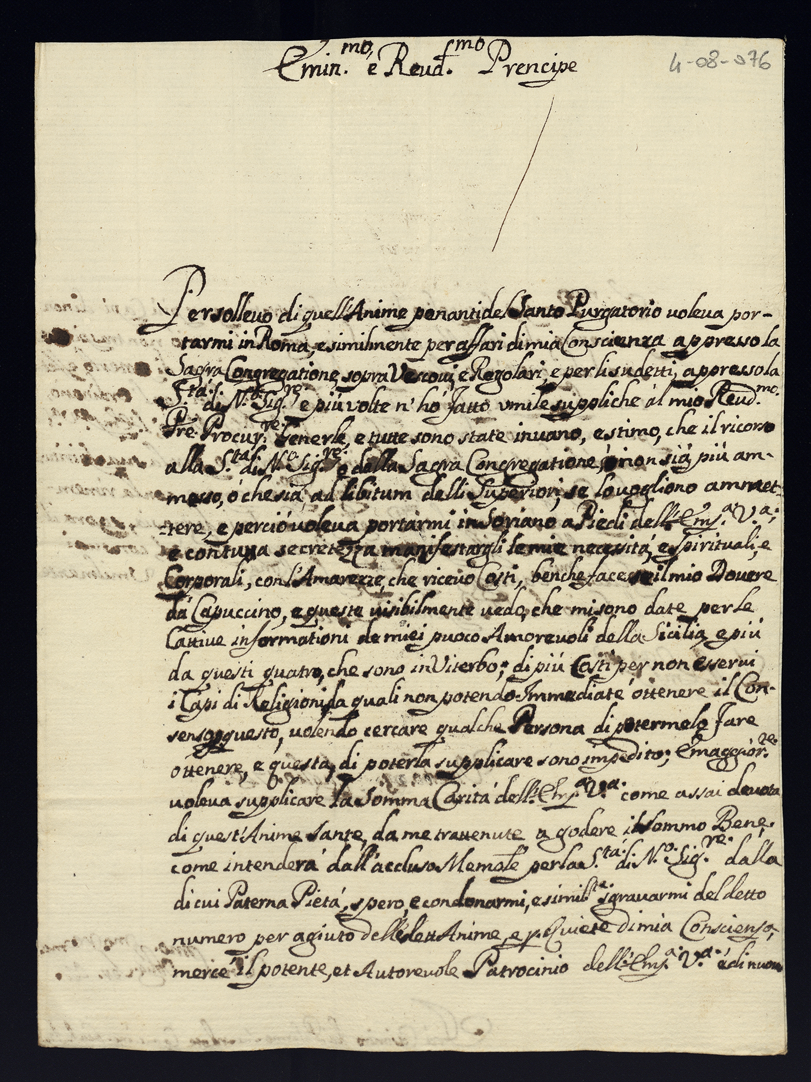 Emin.mo, e Reud.mo Prencipe
4-08-076
Per sollevo di quell'Anime penanti del Santo Purgatorio voleva por-
tarmi in Roma, e similmente per affari di mia Conscienza appresso la
Sacra Congregatione sopra Vescovi, e Regolari, e per li sudetti, appresso la
S.tà di N.ro Sig.re e più volte n'hò fatto umile suppliche al mio Reud.mo
Pre Procur.re Generle, e tutte sono state invano, e stimo, che il ricorso
alla S.tà di N.ro Sig.re e della Sacra Congregatione, ò non sià più am-
messo, ò che sià ad libitum delli Superiori, se lo vogliono ammet-
tere, e perciò voleva portarmi in Soriano a Piedi dell'Em.a V.a;
e con tutta secretezza manifestargli le mie necessità, e spirituali, e
Corporali, con l'Amarezze, che ricevo Costì, benche facesse il mio Dovere
dà Capuccino, e queste visibilmente vedo, che mi sono date per le
Cattive informationi de miei puoco Amorevoli della Sicilia, e più
da questi quatro, che sono in Viterbo; di più Costì per non esservi
i Capi di Religioni, da quali non potendo Immediate ottenere il Con-
senso questo, volendo cercare qualche Persona di potermelo fare
ottenere, e questa, di poterla supplicare sono impedito; e maggior.te
voleva supplicare la somma Carità dell'Em.a V.a come assai devota
di quest'Anime sante, da me travenute a godere il sommo Bene,
come intenderà dall'accluso Memole per la S.tà di N.ro Sig.re dalla
di cui Paterna Pietà, spero, e condonarmi, e simil.te sgravarmi del detto
numero per agiuto delle dett'Anime, e p Quiete di mia Conscienza,
mercè il potente, et Autorevole Patrocinio dell'Em.a V.a e di nuovo